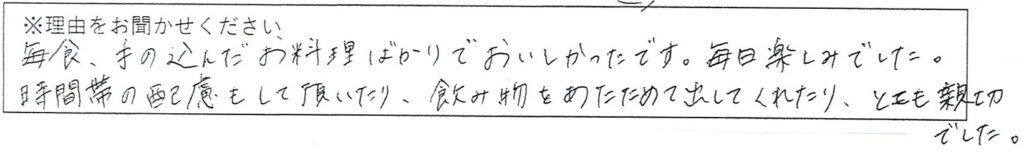 ※理由をお聞かせください
毎食、手の込んだお料理ばかりでおいしかったです。毎日楽しみでした。
時間帯の配慮もして頂いたり、飲み物をあたためて出してくれたり、とても親切
でした。